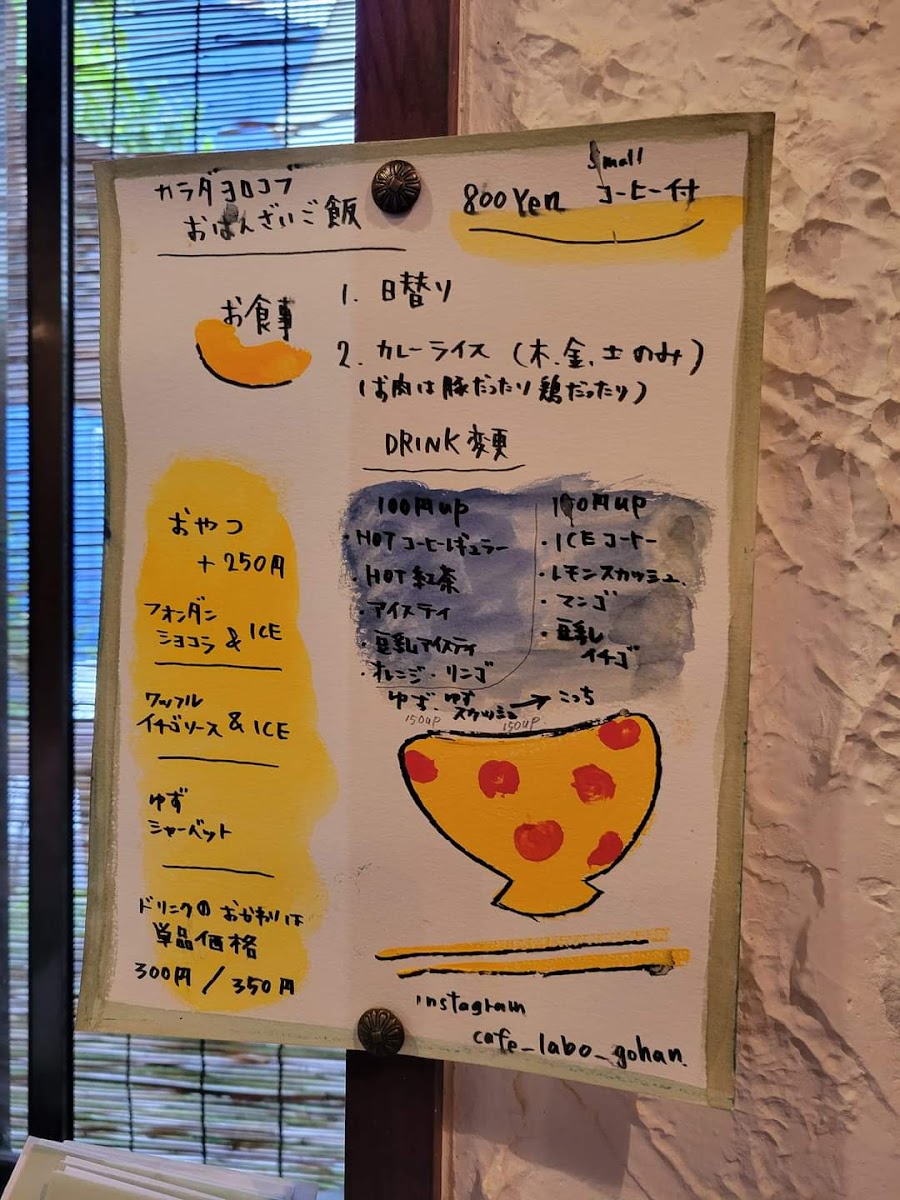 カラダヨロコブ
おばんざいご飯
800 Yen
small
コーヒー付
お食事
1. 日替り
2. カレーライス (木、金、土のみ)
(お肉は豚だったり鶏だったり)
DRINK変更
100円up
・HOTコーヒーレギュラー
・HOT紅茶
・アイスティ
・豆乳アイスティ
・オレンジ・リンゴ
ゆず、ゆずスカッシュ → こっち
150up 150up
・ICEコーヒー
・レモンスカッシュ、
・マンゴ
・豆乳
イチゴ
おやつ
+250円
フォンダン
ショコラ & ICE
ワッフル
イチゴソース & ICE
ゆず
シャーベット
ドリンクのおかわりは
単品価格
300円/350円
instagram
cafe_labo_gohan.